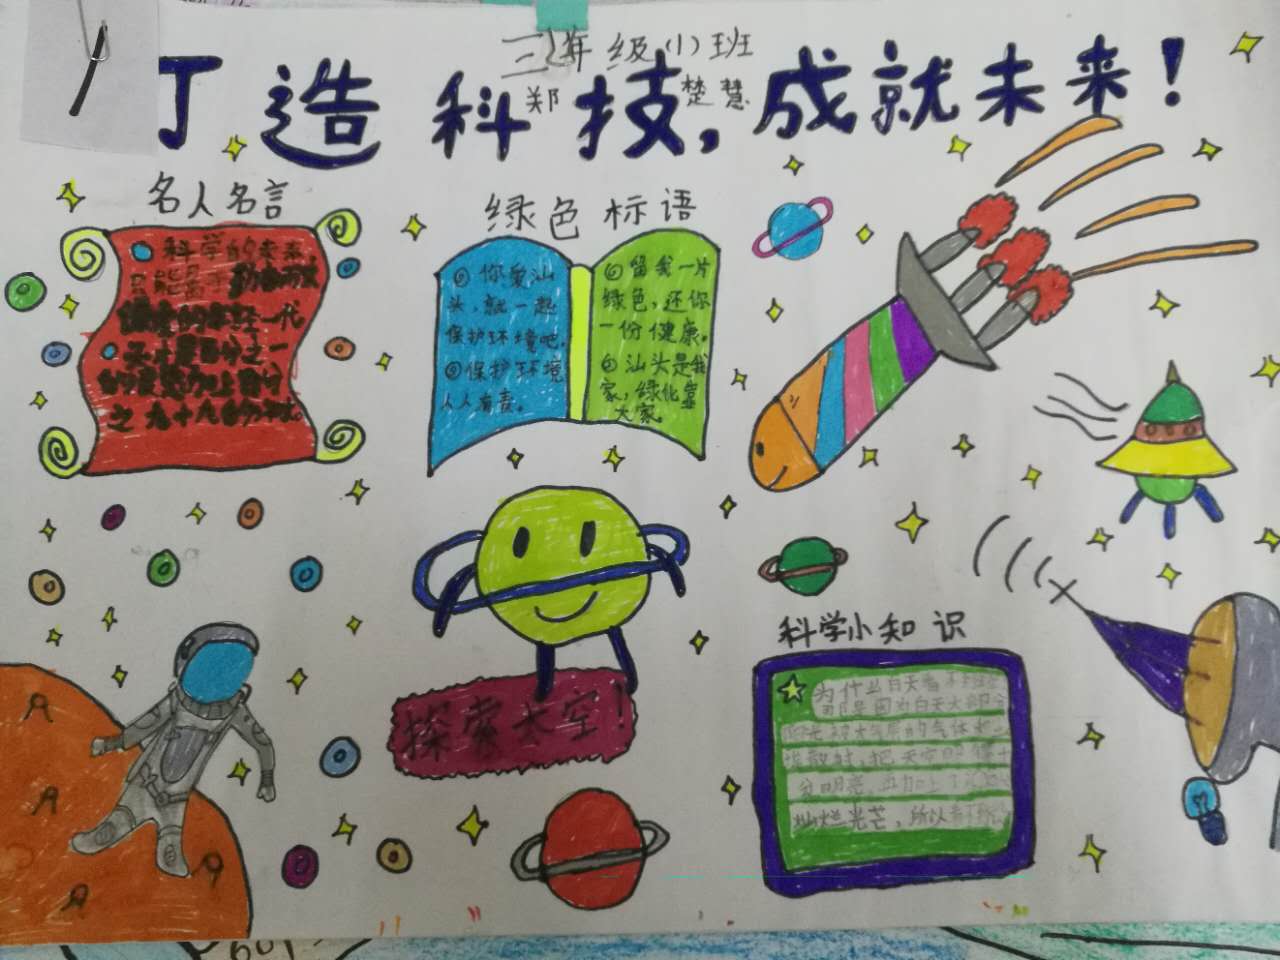 三年级(1)班
丁造科技,成就未来!
郑楚慧
名人名言
科学的未来
只能属于勤奋而谦
虚的年轻一代
天才是百分之一
的灵感加上百分
之九十九的
绿色标语
你爱汕
头,就一起
保护环境吧。
保护环境
人人有责。
留我一片
绿色,还你
一份健康。
汕头是我
家,绿化靠
大家
探索太空!
科学小知识
为什么白天看不
那是因为白天太阳
被大气层的气体
散时,把天空照得十
分明亮,再加上了
灿烂光芒,所以看不